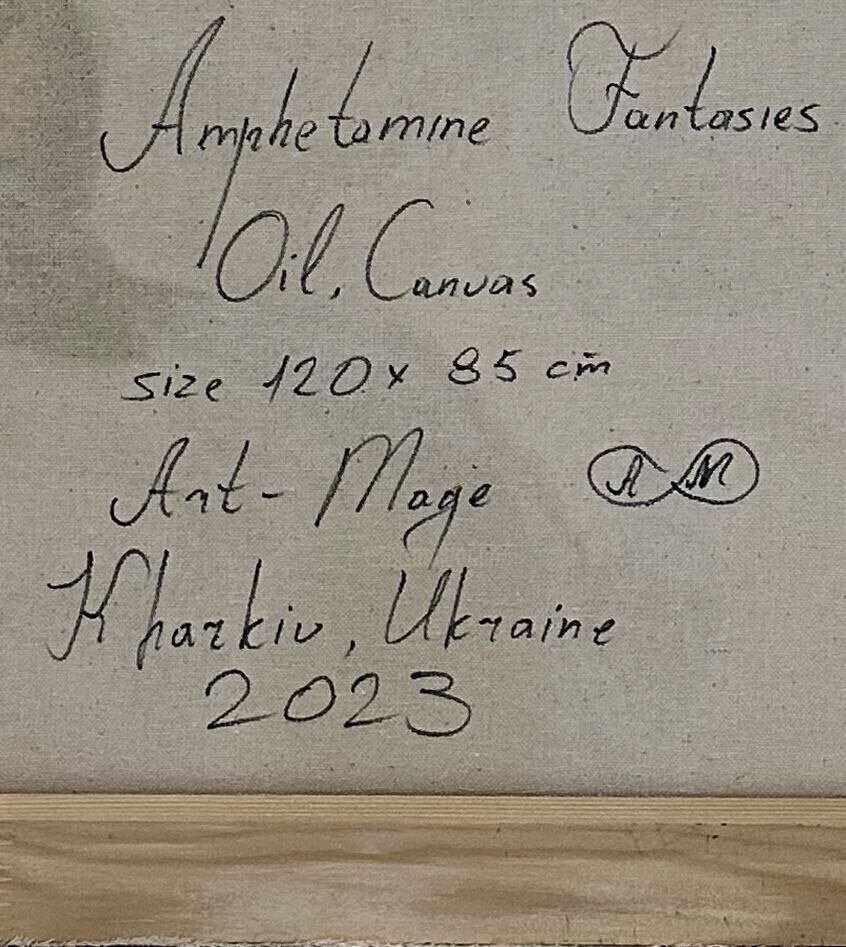 Amphetamine Fantasies
Oil, Canvas
size 120x 85 cm
Art-Mage AM
Kharkiv, Ukraine
2023